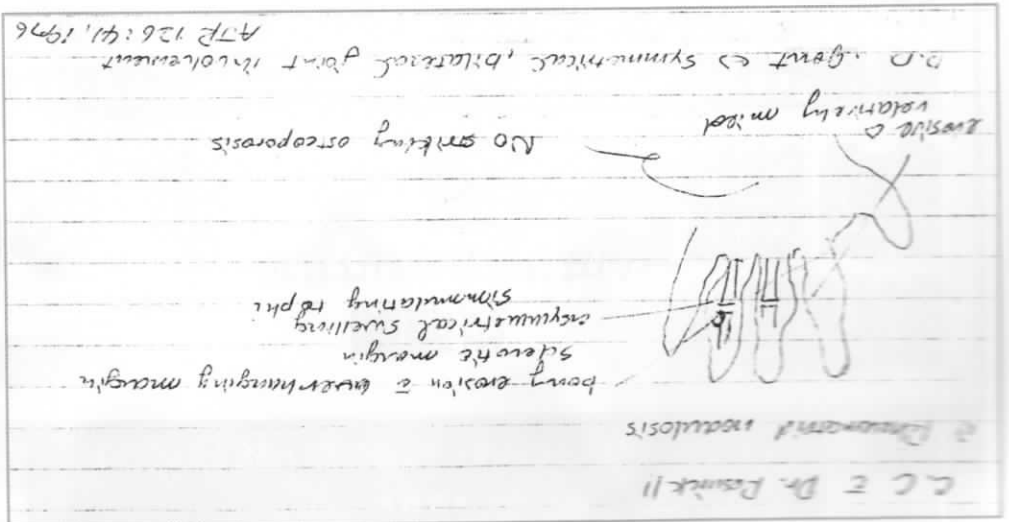 C.C c̄ Dr. Resnick 11
Rheumatoid nodulosis
bony erosion c̄ overhanging margin
sclerotic margin
asymmetrical swelling
simmulating tophi
No striking osteoporosis
erosive
relatively mired
D.D. Gout ↔ symmetrical, bilateral joint involvement
AJR 126:41, 1976